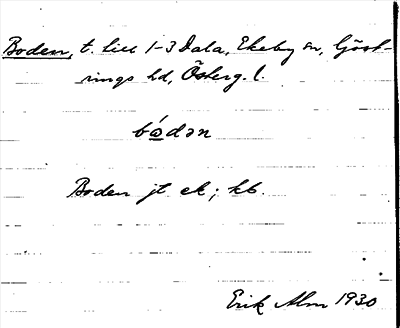 Boden, t. till 1-3 Dala, Ekeby sn, Göst-
rings hd, Österg. l.
bódən
Boden jt. ek; kb.
Erik Alm 1930